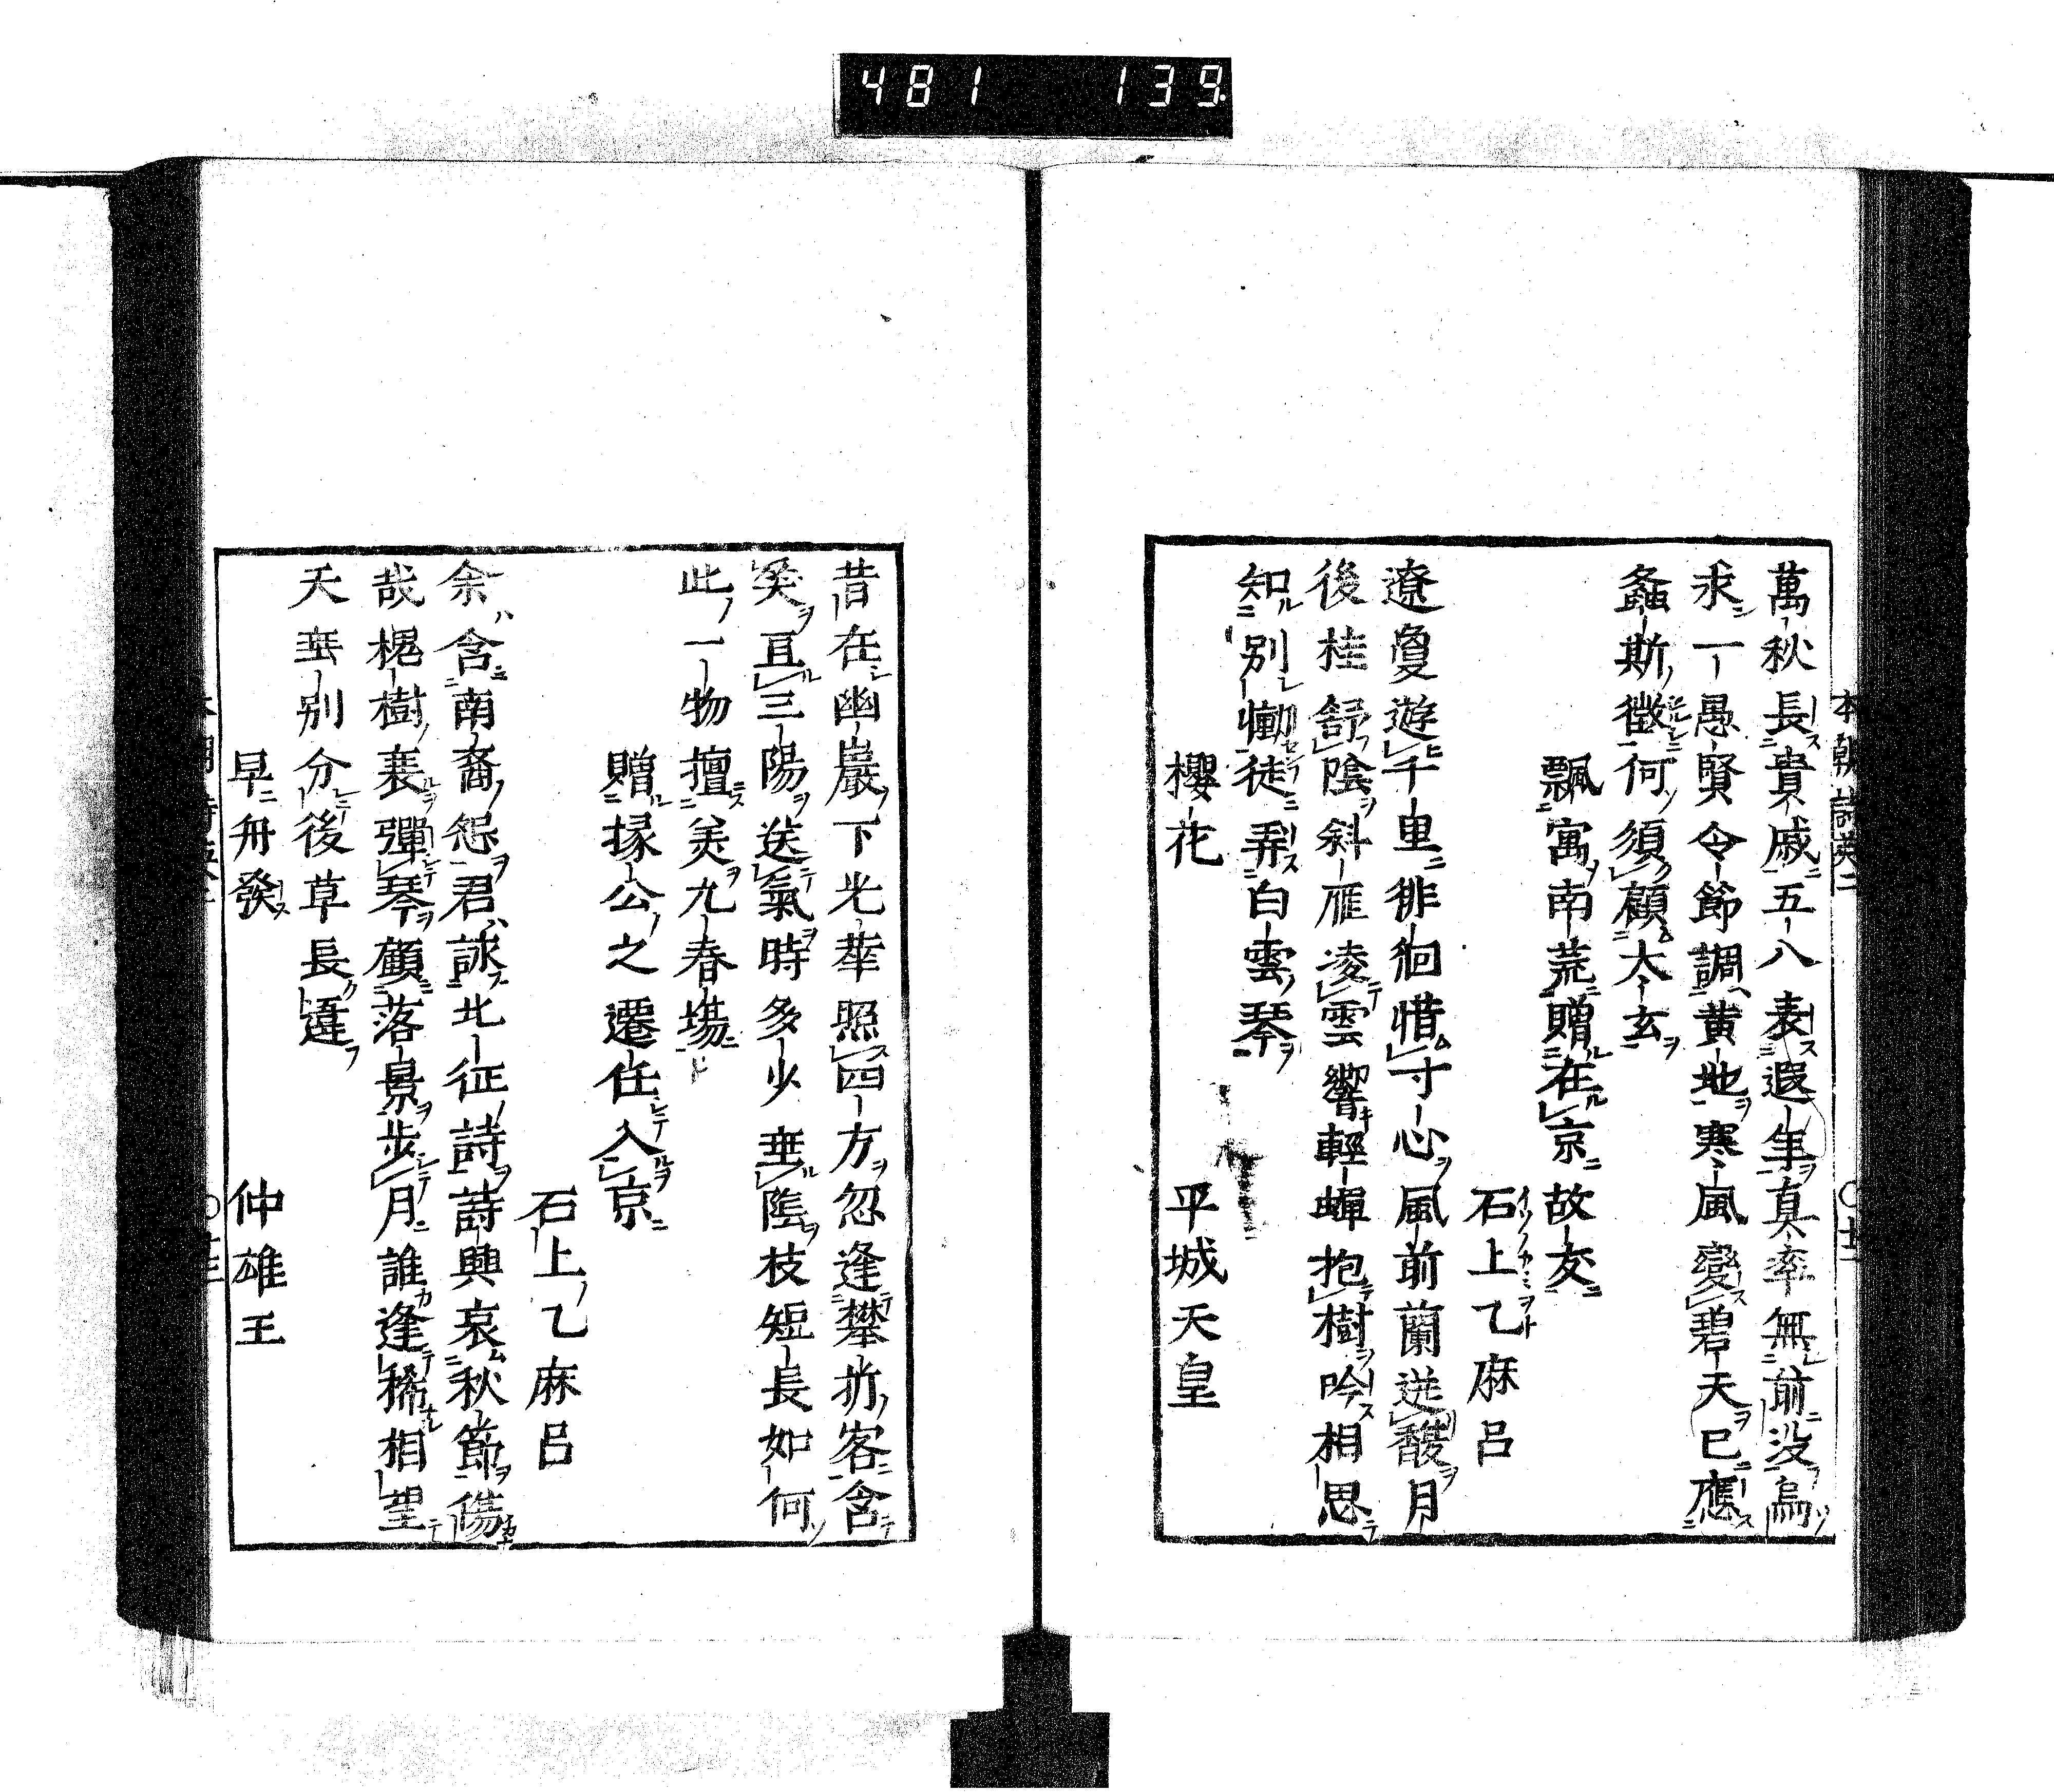 481 139
本朝詩英二
萬秋長貴戚五八表遐年真率無前没烏
求一愚賢令節調黄地寒風變碧天已應
螽斯徴何須顧太玄
飄寓南荒贈在京故友
石上乙麻呂
遼夐遊千里徘徊惜寸心風前蘭送馥月
後桂舒陰斜雁凌雲響輕蟬抱樹吟相思
知別慟徒弄白雲琴
櫻花 平城天皇
昔在幽巖下光華照四方忽逢攀折客含
笑亘三陽送氣時多少垂陰枝短長如何
此一物擅美九春場
贈掾公之遷任入京
石上乙麻呂
余含南裔怨君詠北征詩詩興哀秋節傷
哉槐樹衰彈琴顧落景歩月誰逢稀相望
天垂別分後草長違
早舟發 仲雄王